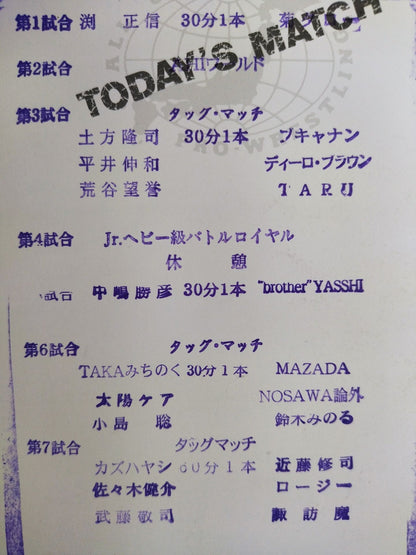 TODAY'S MATCH
PRO-WRESTLING
第1試合 渕 正信 30分1本 菊
第2試合 ワールド
第3試合 タッグ・マッチ
土方隆司 30分1本 ブキャナン
平井伸和 ディーロ・ブラウン
荒谷望誉 TARU
第4試合 Jr.ヘビー級バトルロイヤル
休憩
試合 中嶋勝彦 30分1本 "brother"YASSHI
第6試合 タッグ・マッチ
TAKAみちのく 30分1本 MAZADA
太陽ケア NOSAWA論外
小島 聡 鈴木みのる
第7試合 タッグマッチ
カズハヤシ 60分1本 近藤修司
佐々木健介 ロージー
武藤敬司 諏訪魔